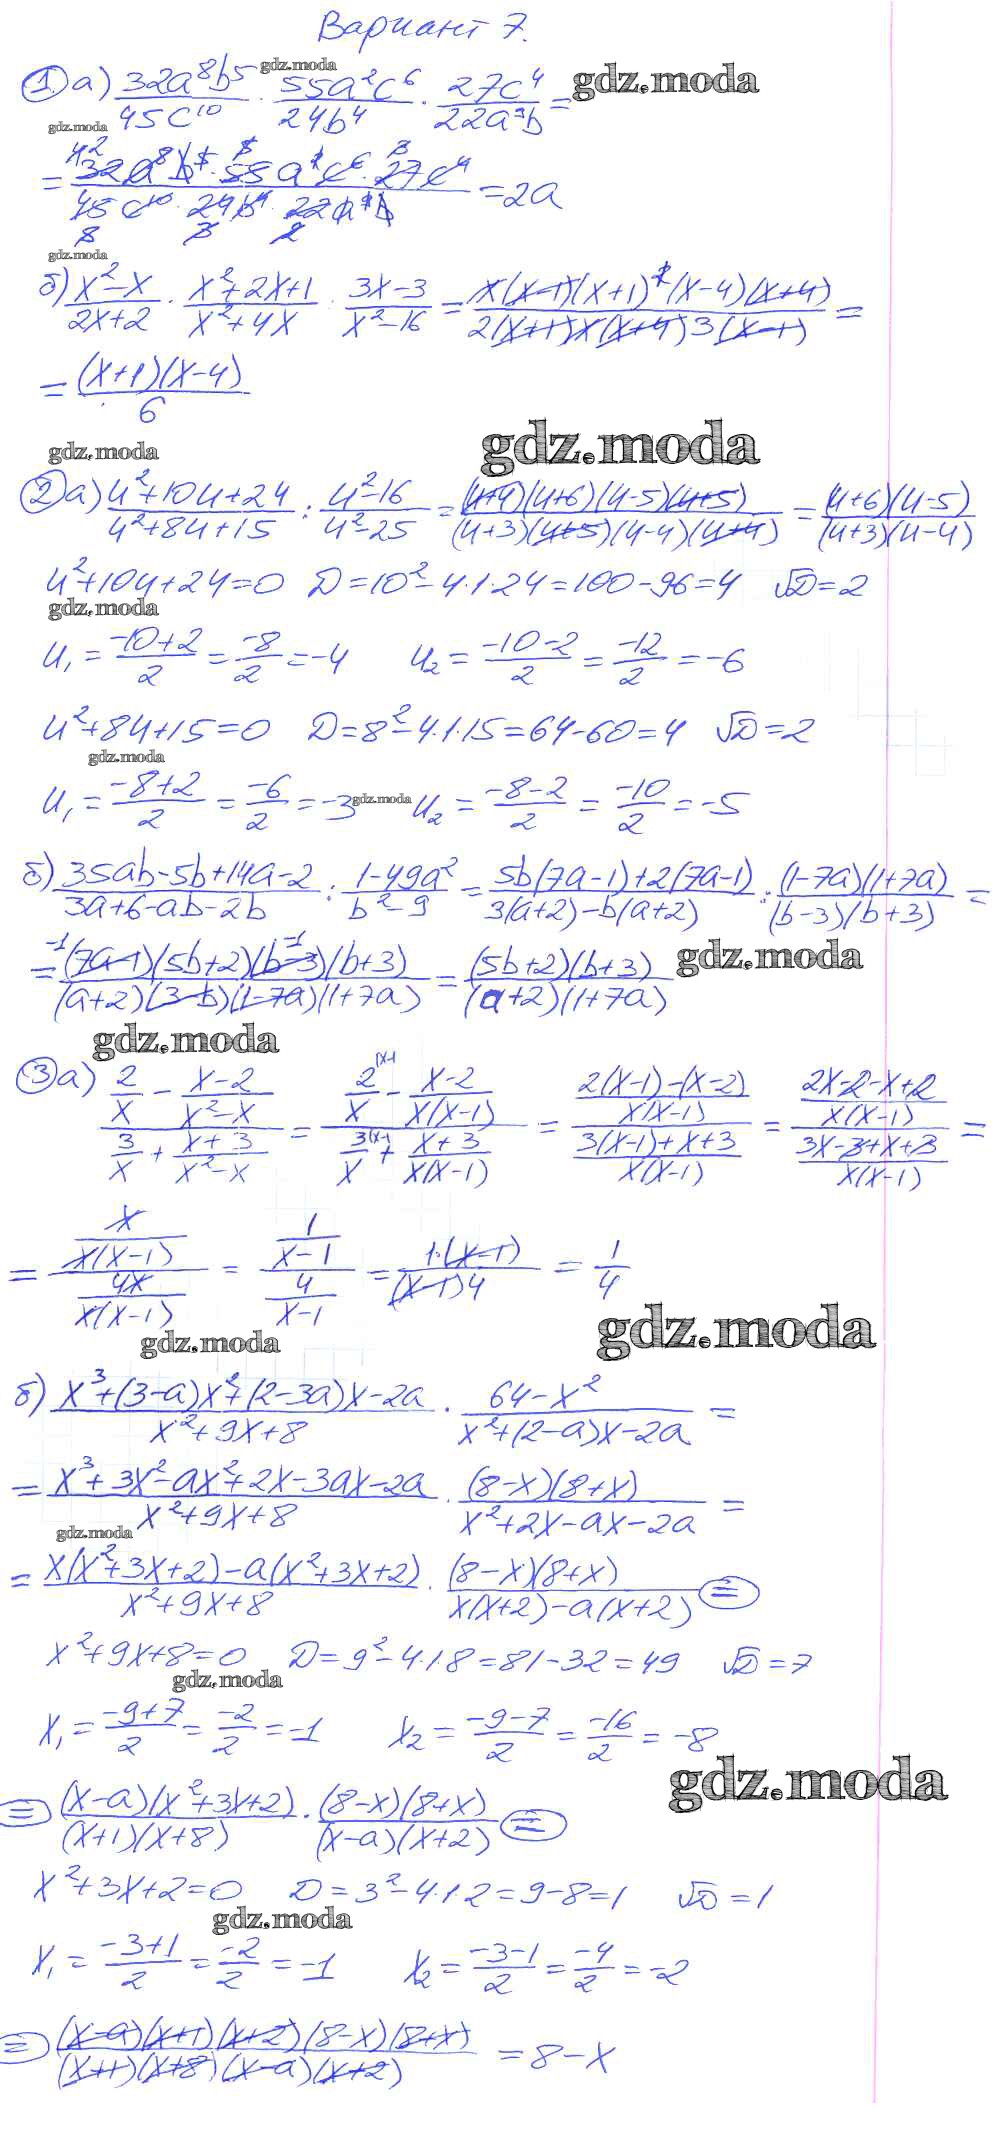 Вариант 7.
① а) 32a⁸b⁵/45c¹⁰ · 55a²c⁶/24b⁴ · 27c⁴/22a⁹b =
gdz.moda
gdz.moda
gdz.moda
= 32a⁸b⁵ · 55a²c⁶ · 27c⁴ / 45c¹⁰ · 24b⁴ · 22a⁹b = 2a
gdz.moda
б) x²-x/2x+2 · x²+2x+1/x²+4x : 3x-3/x²-16 = x(x-1)(x+1)²(x-4)(x+4)/2(x+1)x(x+4)3(x-1) =
= (x+1)(x-4)/6
gdz.moda
gdz.moda
② а) u²+10u+24/u²+8u+15 : u²-16/u²-25 = (u+4)(u+6)(u-5)(u+5)/(u+3)(u+5)(u-4)(u+4) = (u+6)(u-5)/(u+3)(u-4)
u²+10u+24=0 D=10²-4·1·24=100-96=4 √D=2
gdz.moda
u₁ = -10+2/2 = -8/2 = -4 u₂ = -10-2/2 = -12/2 = -6
u²+8u+15=0 D=8²-4·1·15=64-60=4 √D=2
gdz.moda
u₁ = -8+2/2 = -6/2 = -3 gdz.moda u₂ = -8-2/2 = -10/2 = -5
б) 35ab-5b+14a-2/3a+6-ab-2b : 1-49a²/b²-9 = 5b(7a-1)+2(7a-1)/3(a+2)-b(a+2) : (1-7a)(1+7a)/(b-3)(b+3) =
= (7a-1)(5b+2)(b-3)(b+3)/(a+2)(3-b)(1-7a)(1+7a) = (5b+2)(b+3)/(a+2)(1+7a)
gdz.moda
gdz.moda
③ а) (2/x - x-2/x²-x)/(3/x + x+3/x²-x) = (2/x - x-2/x(x-1))/(3/x + x+3/x(x-1)) = (2(x-1)-(x-2)/x(x-1))/(3(x-1)+x+3/x(x-1)) = (2x-2-x+2/x(x-1))/(3x-3+x+3/x(x-1)) =
= (x/x(x-1))/(4x/x(x-1)) = (1/x-1)/(4/x-1) = 1·(x-1)/(x-1)4 = 1/4
gdz.moda
gdz.moda
б) x³+(3-a)x²+(2-3a)x-2a/x²+9x+8 · 64-x²/x²+(2-a)x-2a =
= x³+3x²-ax²+2x-3ax-2a/x²+9x+8 · (8-x)(8+x)/x²+2x-ax-2a =
gdz.moda
= x(x²+3x+2)-a(x²+3x+2)/x²+9x+8 · (8-x)(8+x)/x(x+2)-a(x+2) =
x²+9x+8=0 D=9²-4·1·8=81-32=49 √D=7
gdz.moda
x₁ = -9+7/2 = -2/2 = -1 x₂ = -9-7/2 = -16/2 = -8
gdz.moda
= (x-a)(x²+3x+2)/(x+1)(x+8) · (8-x)(8+x)/(x-a)(x+2) =
x²+3x+2=0 D=3²-4·1·2=9-8=1 √D=1
gdz.moda
x₁ = -3+1/2 = -2/2 = -1 x₂ = -3-1/2 = -4/2 = -2
= (x-a)(x+1)(x+2)(8-x)(8+x)/(x+1)(x+8)(x-a)(x+2) = 8-x